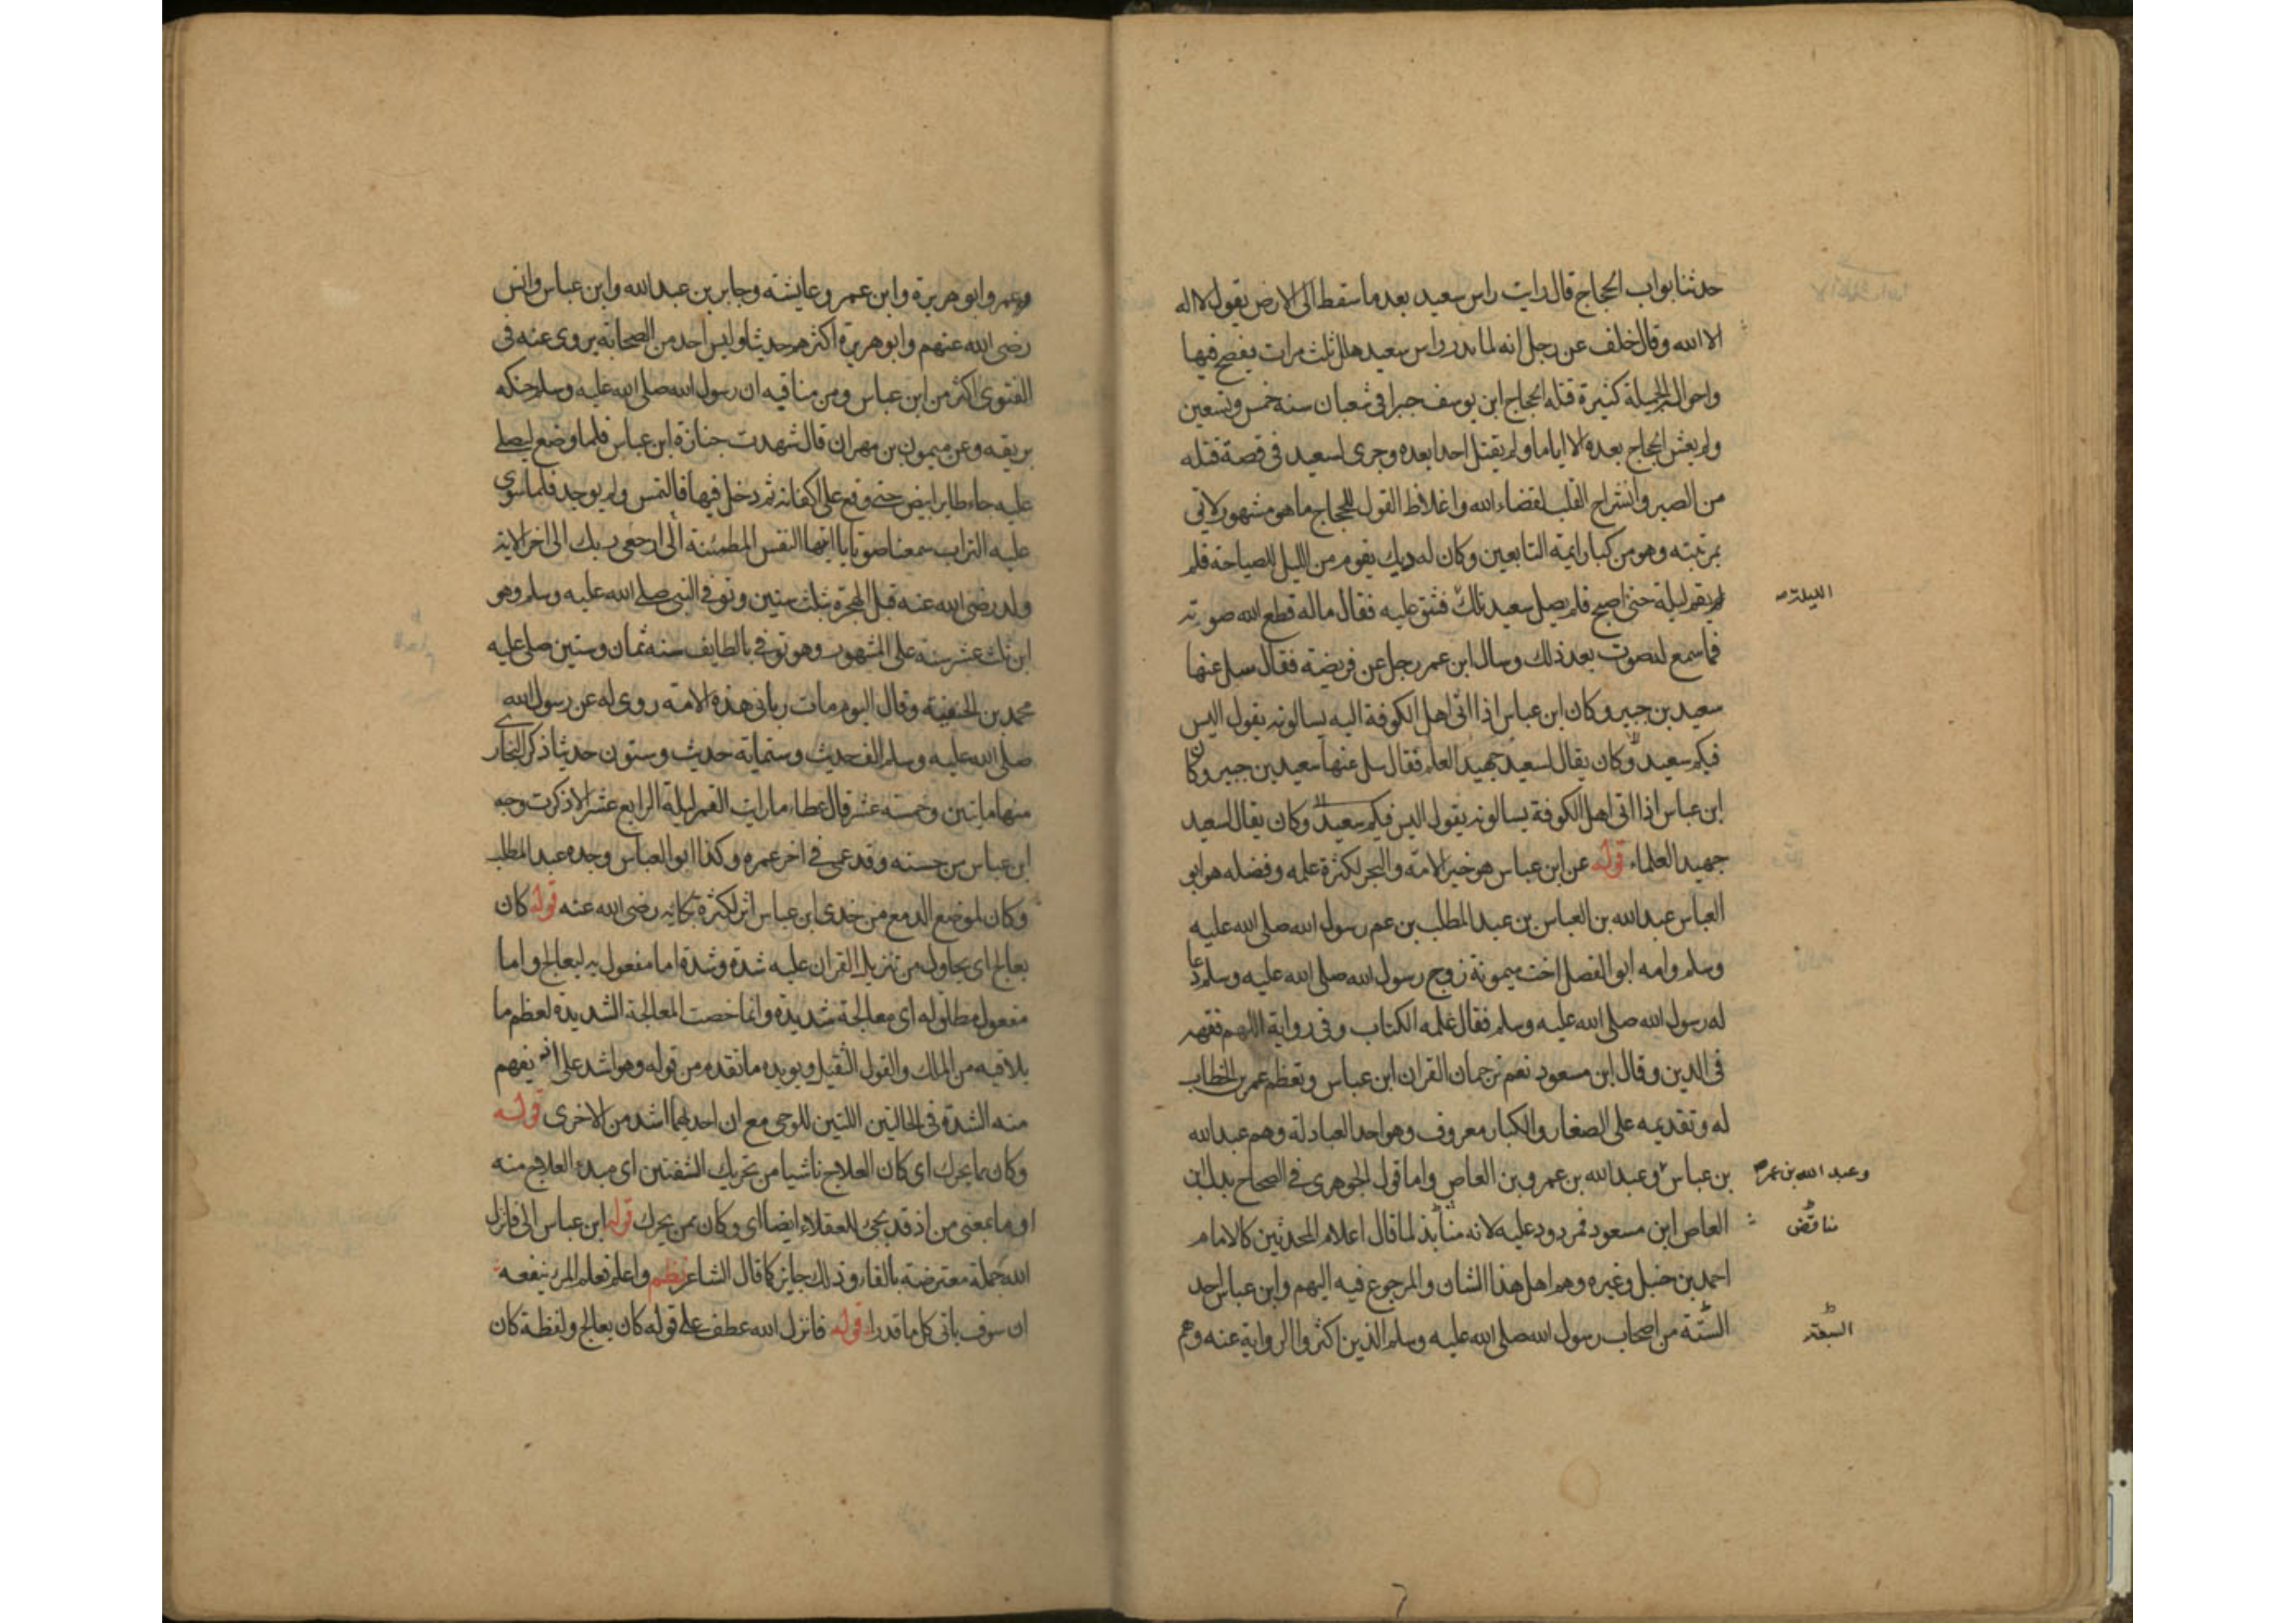 حدثنا بواب الحجاج قال رايت راس سعيد بعد ما سقط الى الارض يقول لا اله
الا الله وقال خلف عن رجل انه لما ندر راس سعيد هلل ثلث مرات يفصح فيها
واحواله الجميلة كثيرة قتله الحجاج ابن يوسف جبرا في شعبان سنة خمس وتسعين
ولم يعش الحجاج بعده الا اياما ولم يقتل احدا بعده وجرى لسعيد في قصة قتله
من الصبر وانشراح القلب لقضاء الله واغلاظ القول للحجاج ما هو مشهور لايق
بمرتبته وهو من كبار ايمة التابعين وكان له ديك يقوم من الليل للصياحة فلم
لم يقم ليلة حتى اصبح فلم يصل سعيد تلك فشق عليه فقال ماله قطع الله صوته
الليلة صه
فما سمع له صوت بعد ذلك وسال ابن عمر رجل عن فريضة فقال سل عنها
سعيد بن جبير وكان ابن عباس اذا اتى اهل الكوفة اليه يسالونه يقول اليس
فيكم سعيد وكان يقال لسعيد جهبيد العلم فقال سل عنها سعيد بن جبير وكان
ابن عباس اذا اتى اهل الكوفة يسالونه يقول اليس فيكم سعيد وكان يقال لسعيد
جهبيد العلماء قوله عن ابن عباس هو خير الامة والبحر لكثرة علمه وفضله هو ابو
العباس عبد الله بن العباس بن عبد المطلب بن عم رسول الله صلى الله عليه
وسلم وامه ابو الفضل اخت ميمونة زوج رسول الله صلى الله عليه وسلم دعا
له رسول الله صلى الله عليه وسلم فقال علمه الكتاب وفي رواية اللهم فقهه
في الدين وقال ابن مسعود نعم ترجمان القران ابن عباس وتعظم عمر بن الخطاب
له وتقديمه على الصغار والكبار معروف وهو احد العبادلة وهم عبد الله
بن عباس وعبد الله بن عمرو بن العاص واما قول الجوهري في الصحاح بدل ابن
وعبد الله بن عمر صه
العاص ابن مسعود فمردود عليه لانه منابذ لما قال اعلام المحدثين كالامام
مناقض
احمد بن حنبل وغيره وهم اهل هذا الشان والمرجوع فيه اليهم وابن عباس احد
الستة من اصحاب رسول الله صلى الله عليه وسلم الذين اكثروا الرواية عنه وهم
السبعة
وعمر وابو هريرة وابن عمر وعايشة وجابر بن عبد الله وابن عباس وانس
رضي الله عنهم وابو هريرة اكثرهم حديثا وليس احد من الصحابة يروى عنه في
الفتوى اكثر من ابن عباس ومن مناقبه ان رسول الله صلى الله عليه وسلم حنكه
بريقه وعن ميمون بن مهران قال شهدت جنازة ابن عباس فلما وضع ليصلى
عليه جاء طاير ابيض حتى وقع على اكفانه ثم دخل فيها فالتمس ولم يوجد فلما سوي
عليه التراب سمعنا صوتا يا ايتها النفس المطمئنة ارجعي الى ربك الى اخر الاية
ولد رضي الله عنه قبل الهجرة بثلث سنين وتوفي النبي صلى الله عليه وسلم وهو
ابن ثلث عشر سنة على المشهور وهو توفي بالطايف سنة ثمان وستين صلى عليه
محمد بن الحنفية وقال اليوم مات رباني هذه الامة روى له عن رسول الله
صلى الله عليه وسلم الف حديث وستماية حديث وستون حديثا ذكر البخاري
منها ماتين وخمسة عشر قال عطاء ما رايت القمر ليلة الرابع عشر الا ذكرت وجه
ابن عباس من حسنه وقد عمي في اخر عمره وكذا ابو العباس وجده عبد المطلب
وكان لموضع الدمع من خدي ابن عباس اثر لكثرة بكائه رضي الله عنه قوله كان
يعالج اي يحاول من تنزيل القران عليه شدة وشدة اما مفعول به ليعالج واما
مفعول مطلق له اي معالجة شديدة وانما خصت المعالجة الشديدة لعظم ما
يلاقيه من الملك والقول الثقيل ويويده ما تقدم من قوله وهو اشد على انه يفهم
منه الشدة في الحالتين اللتين للوحي مع ان احديهما اشد من الاخرى قوله
وكان مما يحرك اي كان العلاج ناشيا من تحريك الشفتين اي مبدء العلاج منه
او ما بمعنى من اذ قد يجئ للعقلاء ايضا اي وكان ممن يحرك قوله ابن عباس الى فانزل
الله جملة معترضة بالفاء وذلك جايز كما قال الشاعر نظم واعلم فعلم المرء ينفعه
ان سوف ياتي كل ما قدرا قوله فانزل الله عطف على قوله كان يعالج ولفظة كان